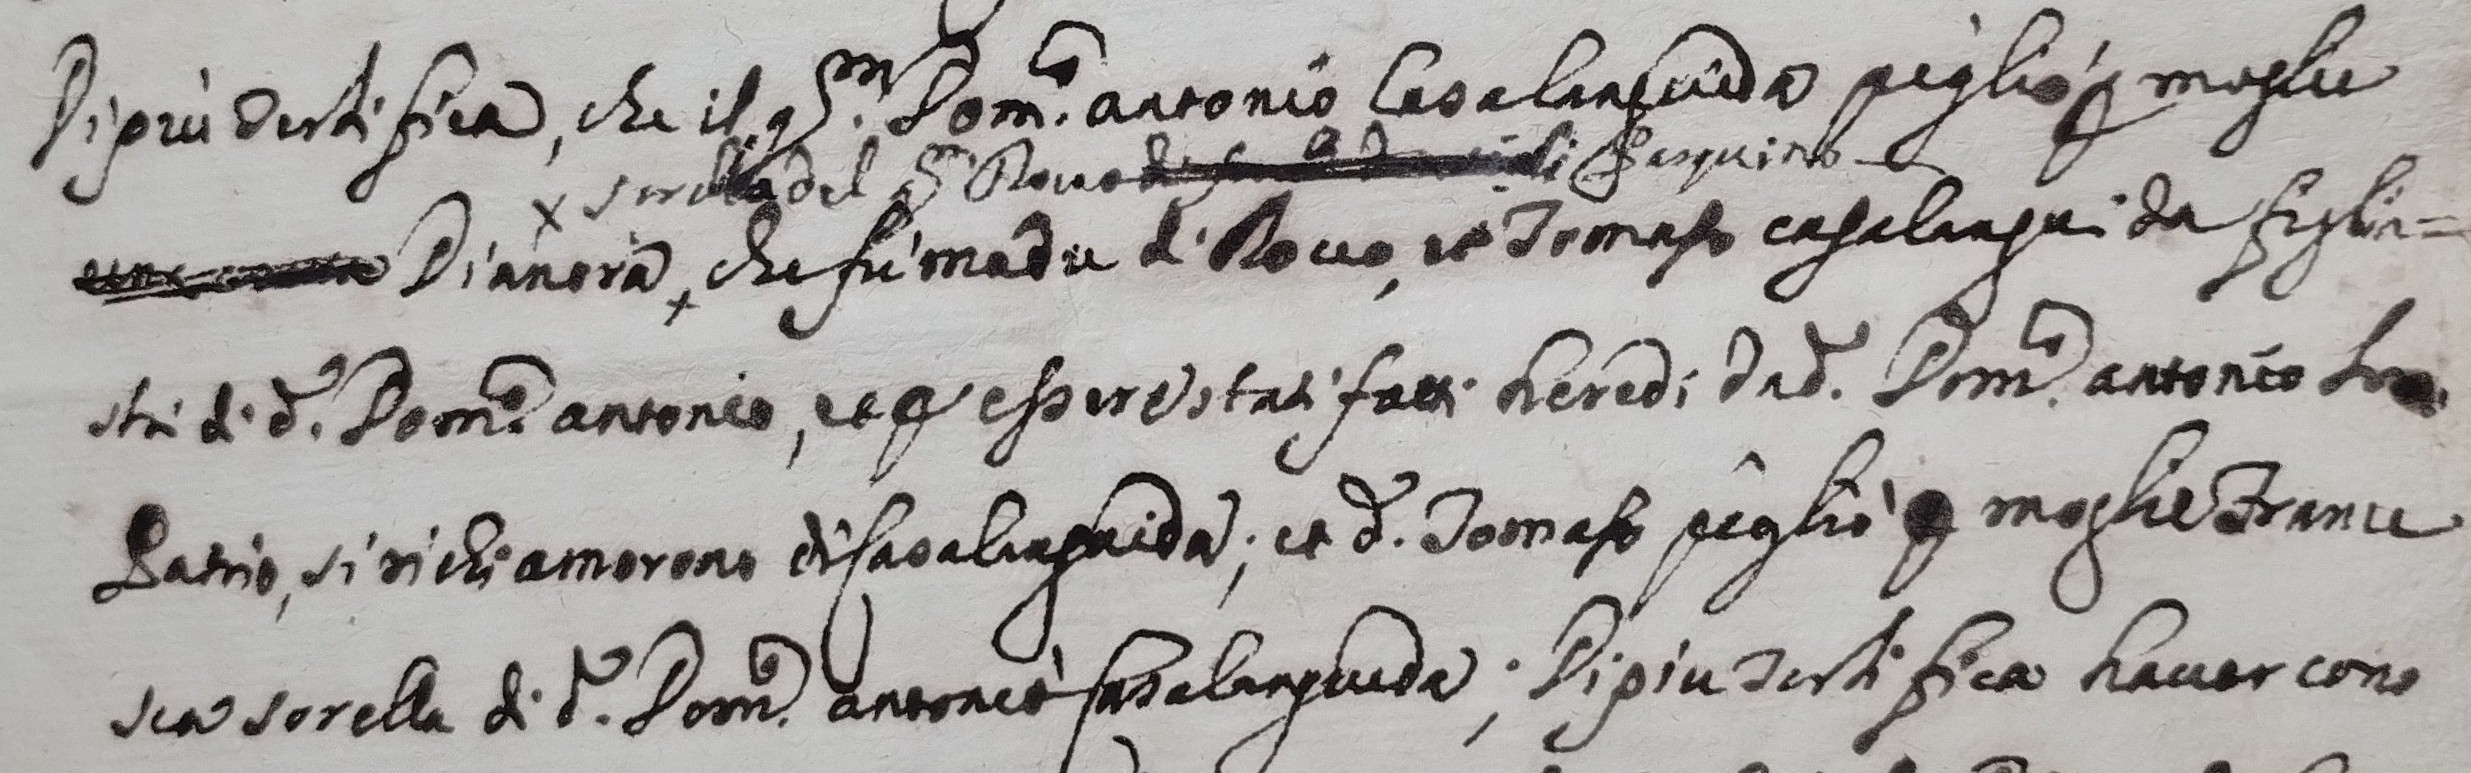 Di più testifica, che il qm. Dom.co Antonio Casalanguida pigliò p moglie
x sorella del qm Rocco di Pasquino
Dianora x, che fù madre di Rocco, et Tomaso casalanguida figlia=
stri di d.o Dom.co antonio, et p essere stati fatti heredi da d.o Dom.co antonio loro
Patrio, si richiamorono di Casalanguida; et d.o Tomaso pigliò p moglie France
sca sorella di d.o Dom.co antonio Casalanguida; Di più testifica haver cono